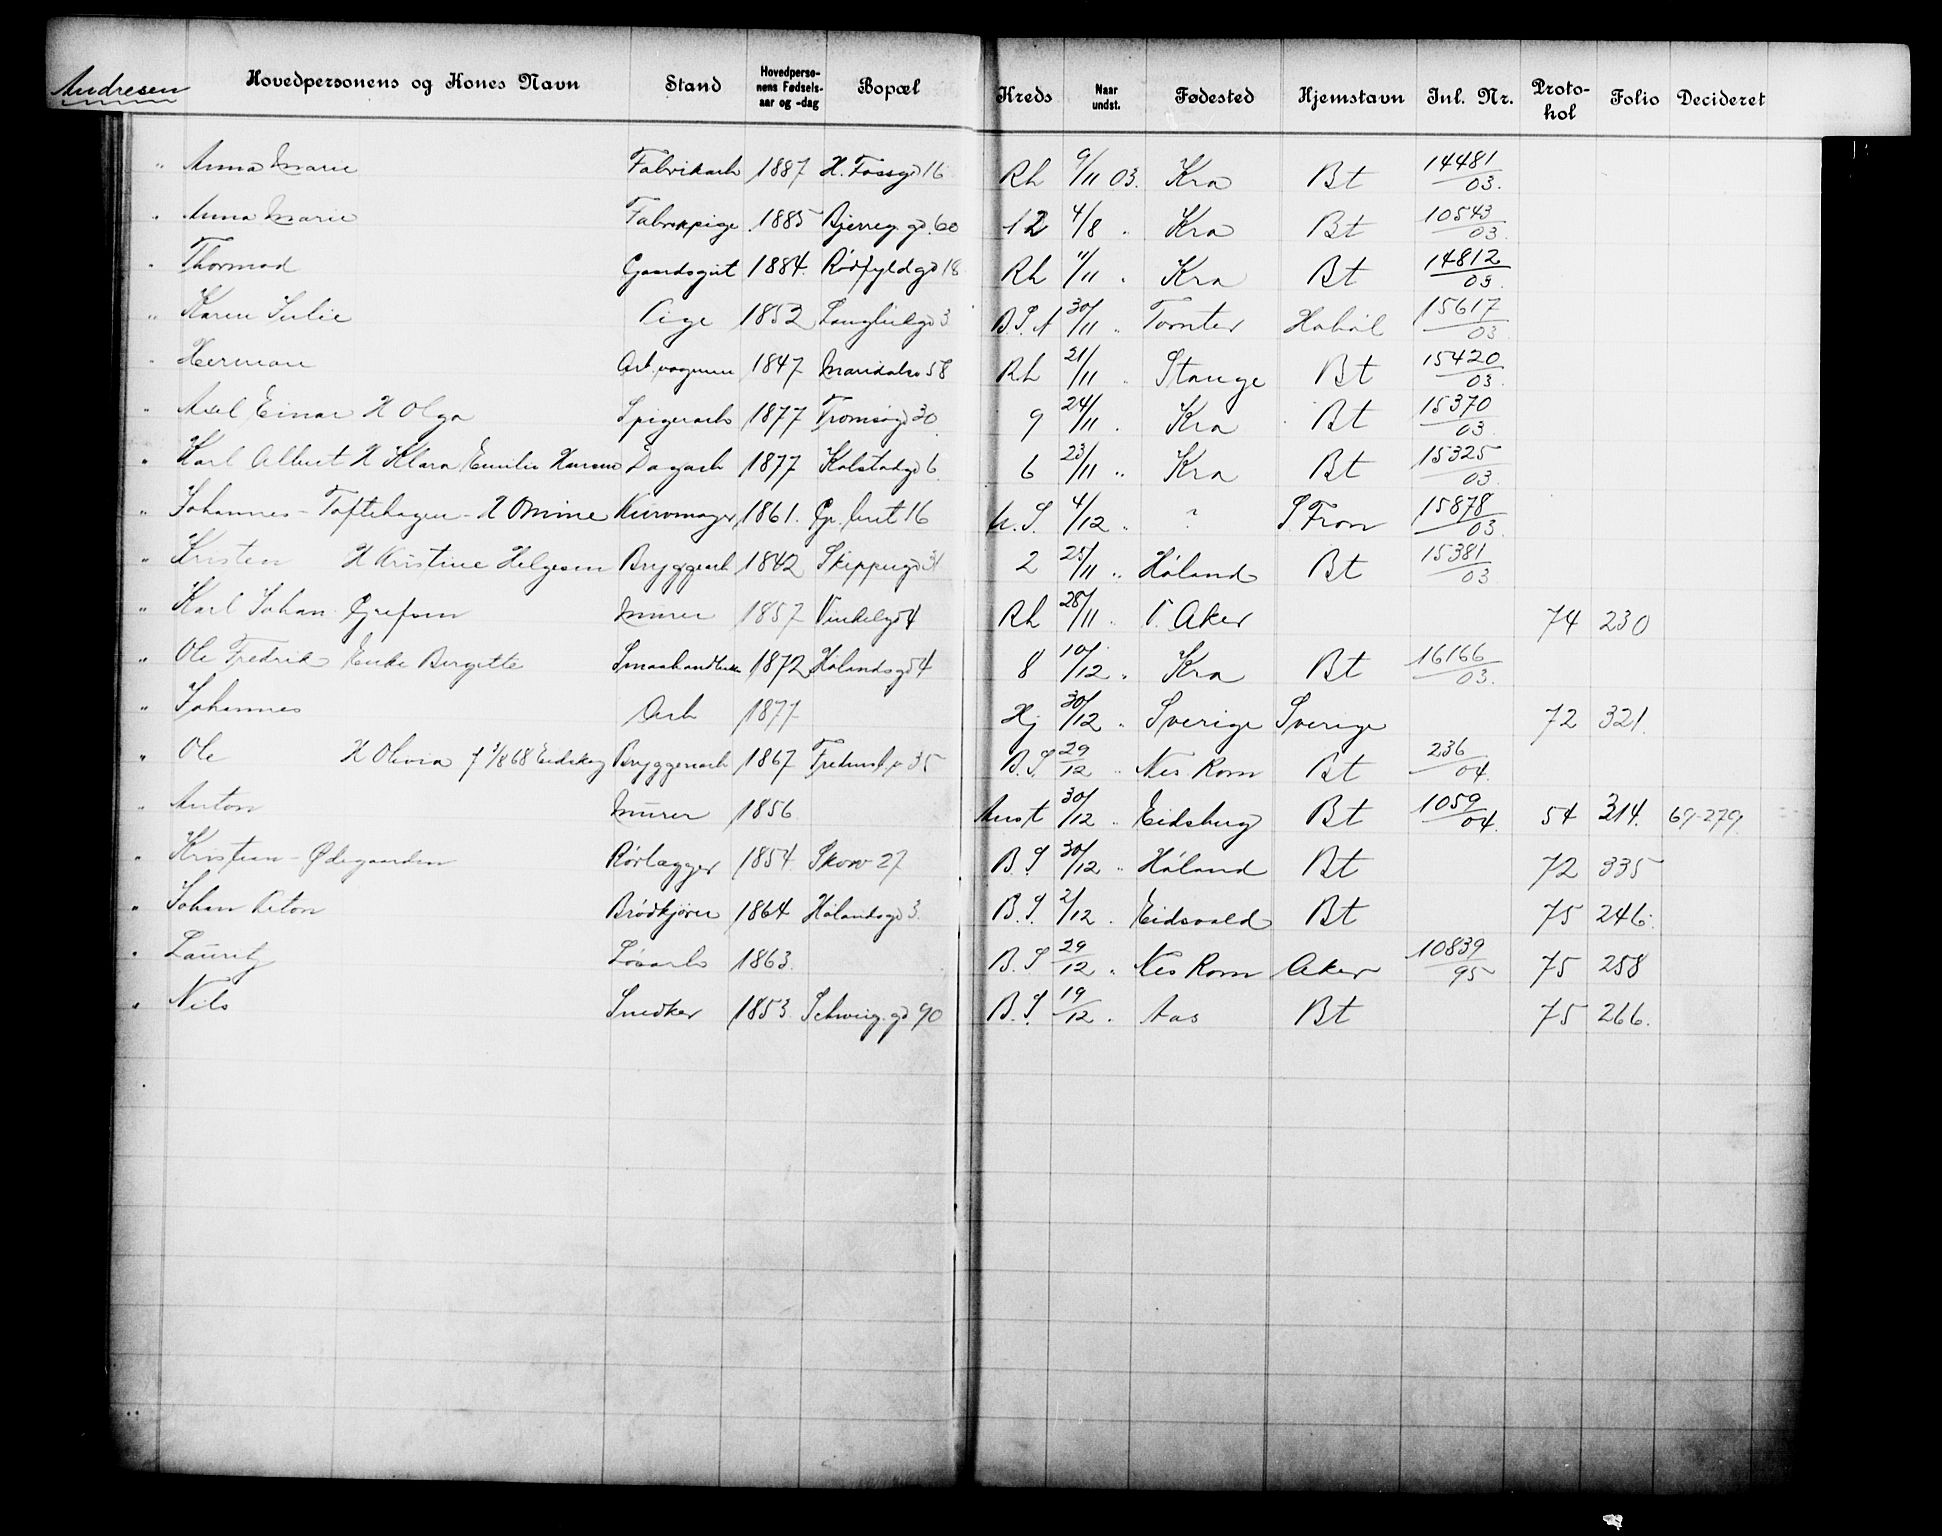 Andresen Hovedpersonens og Kones Navn Stand Hovedperso-nens Fødsels-aar og -dag Bopæl Kreds Naar undst. Fødested Hjemstavn Inl. Nr. Proto-kol Folio Decideret
" Anna Marie Fabrikarb 1887 H. Fossgd 16 Rh 9/11 03. Kra Bt 14481/03.
" Anna Marie Fabrikpige 1885 Bjerreg. gd. 60 12 4/8 " Kra Bt 10543/03.
" Thormod Gaardsgut 1884. Rødfyldgd 18 Rh 11/11 " Kra Bt 14812/03.
" Karen Julie Pige 1852 Langlikgd 3 B.S.A 30/11 " Tomter Hobøl 15617/03
" Herman Arb, vognm 1847 Maridalsv 58 Rh 21/11 " Stange Bt 15420/03.
" Axel Einar H Olga Spigerarb 1877 Tromsøgd 30 9 24/11 " Kra Bt 15370/03.
" Karl Albert H Klara Emilie Hansen Dagarb 1877 Kolstadgd 6 6 23/11 " Kra Bt 15325/03.
" Johannes - Toftehagen - H Omine Kurvmager 1861. Gr. leret 16 U.S. 4/12 " ? S. Fron 15878/03.
" Kristen H Kristine Helgesen Bryggearb 1842 Skippergd 31 2 25/11 " Høland Bt 15381/03
" Karl Johan Grefsen Murer 1857 Vinkelgd 4 Rh 28/11 " V. Aker 74 230
" Ole Fredrik Enke Birgitte Smaahandler 1872 Hølandsgd 4 8 10/12 " Kra Bt 16166/03.
" Johannes Arb 1877 Hj 30/12 " Sverige Sverige 72 321.
" Ole H Olivia f 1/8 68 Eidskog Bryggeriarb 1867 35 B.S 29/12 " Nes Rom Bt 236/04.
" Anton Murer 1856 Anst 30/12 " Eidsberg Bt 1059/04. 54 314. 69-279.
" Kristian - Ødegaarden Rørlægger 1854. Skovv 27 B.S 30/12 " Høland Bt 72 335
" Johan Anton Brødkjører 1864 Hølandsgd 3. B.S. 2/12 " Eidsvold Bt 75 246.
" Lauritz Løsarb 1863. B.S 29/12 " Nes Rom Aker 10839/95 75 258
" Nils Snedker 1853. Schweig. gd 90 B.S. 19/12 " Aas Bt 75 266.